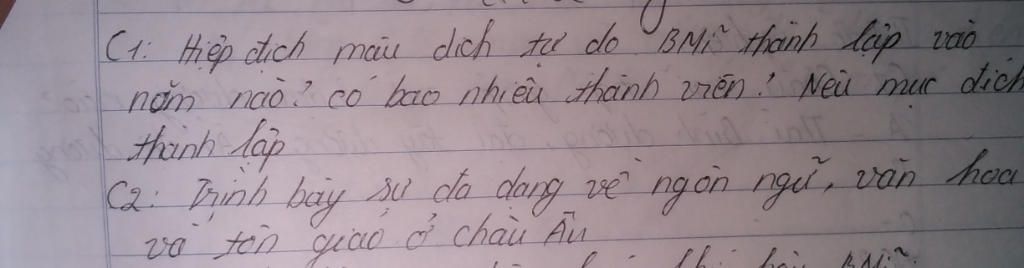 C1: Hiệp định mậu dịch tự do BMĩ thành lập vào
năm nào? có bao nhiêu thành viên? Nêu mục đích
thành lập
C2: Trình bày sự đa dạng về ngôn ngữ, văn hoa
và tôn giáo ở châu Âu